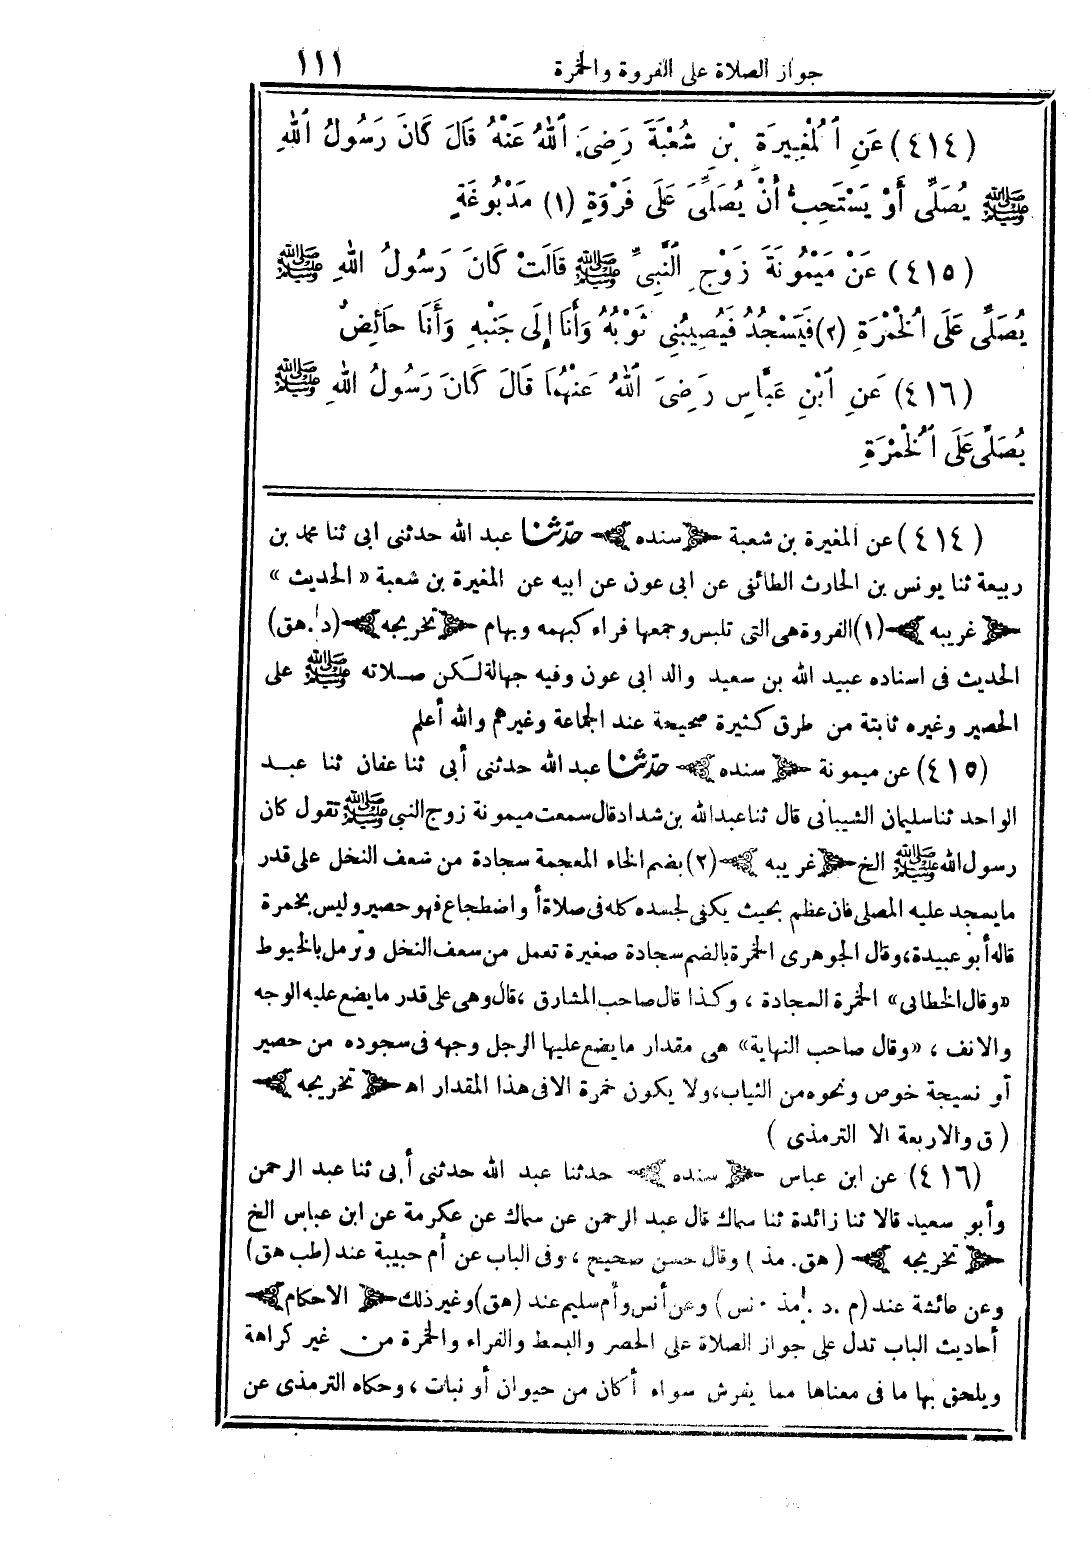 جواز الصلاة على الفروة والخمرة ١١١
(٤١٤) عَنِ ٱلْمُغِيرَةِ بْنِ شُعْبَةَ رَضِىَ ٱللهُ عَنْهُ قَالَ كَانَ رَسُولُ ٱللهِ
ﷺ يُصَلِّى أَوْ يَسْتَحِبُّ أَنْ يُصَلِّىَ عَلَى فَرْوَةٍ (١) مَدْبُوغَةٍ
(٤١٥) عَنْ مَيْمُونَةَ زَوْجِ ٱلنَّبِىِّ ﷺ قَالَتْ كَانَ رَسُولُ اللهِ ﷺ
يُصَلِّى عَلَى ٱلْخُمْرَةِ (٢) فَيَسْجُدُ فَيُصِيبُنِى ثَوْبُهُ وَأَنَا إِلَى جَنْبِهِ وَأَنَا حَائِضٌ
(٤١٦) عَنِ ابْنِ عَبَّاسٍ رَضِىَ ٱللهُ عَنْهُمَا قَالَ كَانَ رَسُولُ اللهِ ﷺ
يُصَلِّى عَلَى ٱلْخُمْرَةِ
(٤١٤) عن المغيرة بن شعبة ﴿سنده﴾ حدّثنا عبد الله حدثنى ابى ثنا محمد بن
ربيعة ثنا يونس بن الحارث الطائفى عن ابى عون عن ابيه عن المغيرة بن شعبة «الحديث»
﴿غريبه﴾ (١) الفروة هى التى تلبس وجمعها فراء كبهمه وبهام ﴿تخريجه﴾ (د. هق)
الحديث فى اسناده عبيد الله بن سعيد والد ابى عون وفيه جهالة لكن صلاته ﷺ على
الحصير وغيره ثابتة من طرق كثيرة صحيحة عند الجماعة وغيرهم والله أعلم
(٤١٥) عن ميمونة ﴿سنده﴾ حدّثنا عبد الله حدثنى أبى ثنا عفان ثنا عبد
الواحد ثنا سليمان الشيبانى قال ثنا عبدالله بن شداد قال سمعت ميمونة زوج النبى ﷺ تقول كان
رسول الله ﷺ الخ ﴿غريبه﴾ (٢) بضم الخاء المعجمة سجادة من سعف النخل على قدر
ما يسجد عليه المصلى فان عظم بحيث يكفى لجسده كله فى صلاة أو اضطجاع فهو حصير وليس بخمرة
قاله أبو عبيدة، وقال الجوهرى الخمرة بالضم سجادة صغيرة تعمل من سعف النخل وترمل بالخيوط
«وقال الخطابى» الخمرة السجادة ، وكذا قال صاحب المشارق ، قال وهى على قدر ما يضع عليه الوجه
والانف ، «وقال صاحب النهاية» هى مقدار ما يضع عليها الرجل وجهه فى سجوده من حصير
أو نسيجة خوص ونحوه من الثياب، ولا يكون خمرة الا فى هذا المقدار اه ﴿تخريجه﴾
( ق والاربعة الا الترمذى )
(٤١٦) عن ابن عباس ﴿سنده﴾ حدثنا عبد الله حدثنى أبى ثنا عبد الرحمن
وأبو سعيد قالا ثنا زائدة ثنا سماك قال عبد الرحمن عن سماك عن عكرمة عن ابن عباس الخ
﴿تخريجه﴾ ( هق. مذ ) وقال حسن صحيح ، وفى الباب عن أم حبيبة عند (طب هق)
وعن عائشة عند (م . د . مذ . نس) وعن أنس وأم سليم عند (هق) وغير ذلك ﴿الاحكام﴾
أحاديث الباب تدل على جواز الصلاة على الحصر والبسط والفراء والخمرة من غير كراهة
ويلحق بها ما فى معناها مما يفرش سواء أكان من حيوان أو نبات ، وحكاه الترمذى عن